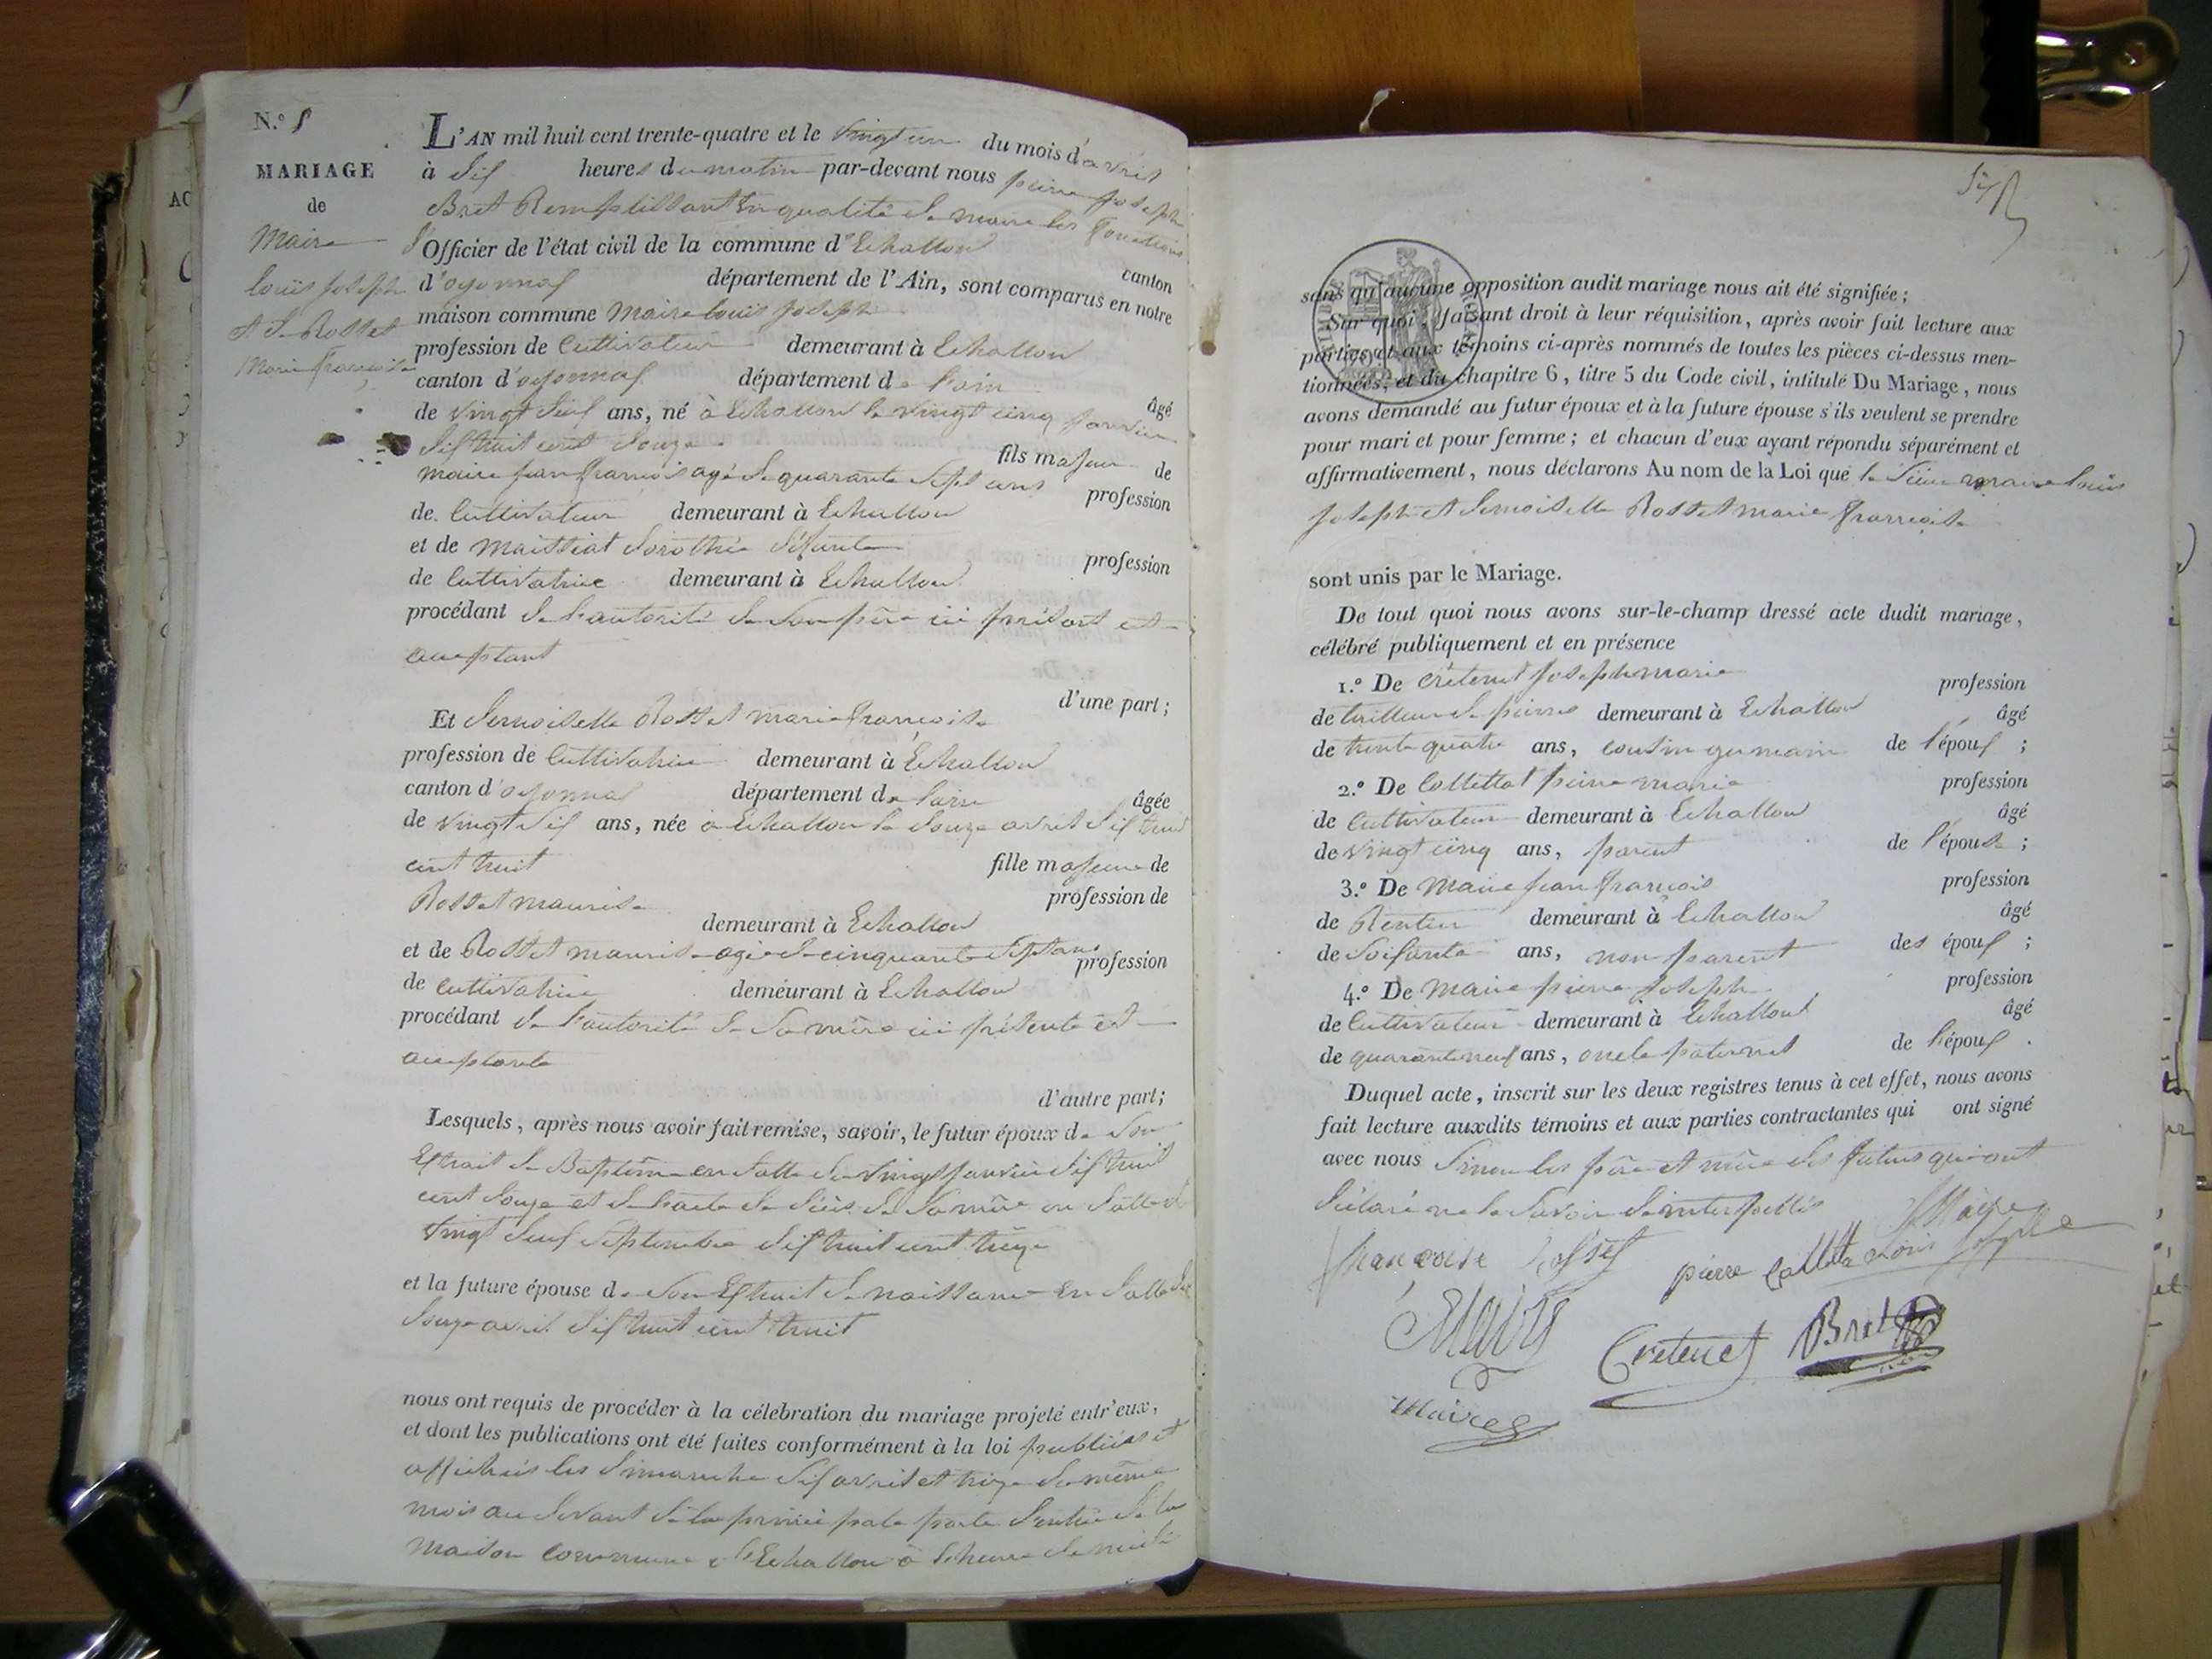 N.º 5
MARIAGE
de
Maire
Louis Joseph
et de Rosset
Marie françoise
L'AN mil huit cent trente-quatre et le vingt un du mois d'avril
à dix heures du matin par-devant nous pierre joseph
Bret Remplissant en qualité de maire les fonctions
d'Officier de l'état civil de la commune d'Echallon canton
d'oyonnax département de l'Ain, sont comparus en notre
maison commune Maire louis joseph
profession de Cultivateur demeurant à Echallon
canton d'oyonnax département de l'ain âgé
de vingt deux ans, né à Echallon le vingt cinq janvier
dix huit cent douze fils majeur de
maire jean françois agé de quarante sept ans profession
de Cultivateur demeurant à Echallon
et de Maissiat dorothée défunte profession
de Cultivatrice demeurant à Echallon
procédant de l'autorité de son père ici présent et
acceptant
d'une part;
Et demoiselle Rosset marie françoise
profession de Cultivatrice demeurant à Echallon
canton d'oyonnax département de l'ain âgée
de vingt six ans, née à Echallon le douze avril dix huit
cent huit fille majeure de
Rosset maurise profession de
demeurant à Echallon
et de Rosset maurise agée de cinquante sept ans profession
de Cultivatrice demeurant à Echallon
procédant de l'autorité de sa mère ici présente et
acceptante
d'autre part;
Lesquels, après nous avoir fait remise, savoir, le futur époux de son
Extrait de Baptême en datte du vingt janvier dix huit
cent douze et de l'acte de décès de sa mère en datte du
vingt deux septembre dix huit cent treize
et la future épouse de son Extrait de naissance en datte du
douze avril dix huit cent huit
nous ont requis de procéder à la célebration du mariage projeté entr'eux,
et dont les publications ont été faites conformément à la loi publiées et
affichées les dimanche six avril et treize du même
mois au devant de la principale porte d'entrée de la
maison commune d'Echallon à l'heure de midi
sans qu'aucune opposition audit mariage nous ait été signifiée;
Sur quoi, faisant droit à leur réquisition, après avoir fait lecture aux
parties et aux témoins ci-après nommés de toutes les pièces ci-dessus men-
tionnées, et du chapitre 6, titre 5 du Code civil, intitulé Du Mariage, nous
avons demandé au futur époux et à la future épouse s'ils veulent se prendre
pour mari et pour femme; et chacun d'eux ayant répondu séparément et
affirmativement, nous déclarons Au nom de la Loi que le sieur maire louis
joseph et demoiselle Rosset marie françoise
sont unis par le Mariage.
De tout quoi nous avons sur-le-champ dressé acte dudit mariage,
célébré publiquement et en présence
1.º De crétenet joseph marie profession
de tailleur de pierres demeurant à Echallon âgé
de trente quatre ans, cousin germain de l'époux ;
2.º De Collettat pierre marie profession
de Cultivateur demeurant à Echallon âgé
de vingt cinq ans, parent de l'épouse ;
3.º De Maire jean françois profession
de Rentier demeurant à Echallon âgé
de soixante ans, non parent des époux ;
4.º De Maire pierre joseph profession
de Cultivateur demeurant à Echallon âgé
de quarante neuf ans, oncle paternel de l'époux .
Duquel acte, inscrit sur les deux registres tenus à cet effet, nous avons
fait lecture auxdits témoins et aux parties contractantes qui ont signé
avec nous sinon les père et mère des futurs qui ont
déclaré ne le savoir de interpellés
françoise Rosset pierre Colletta Maire Louis joseph
Maire Cretenet Bret
Maire